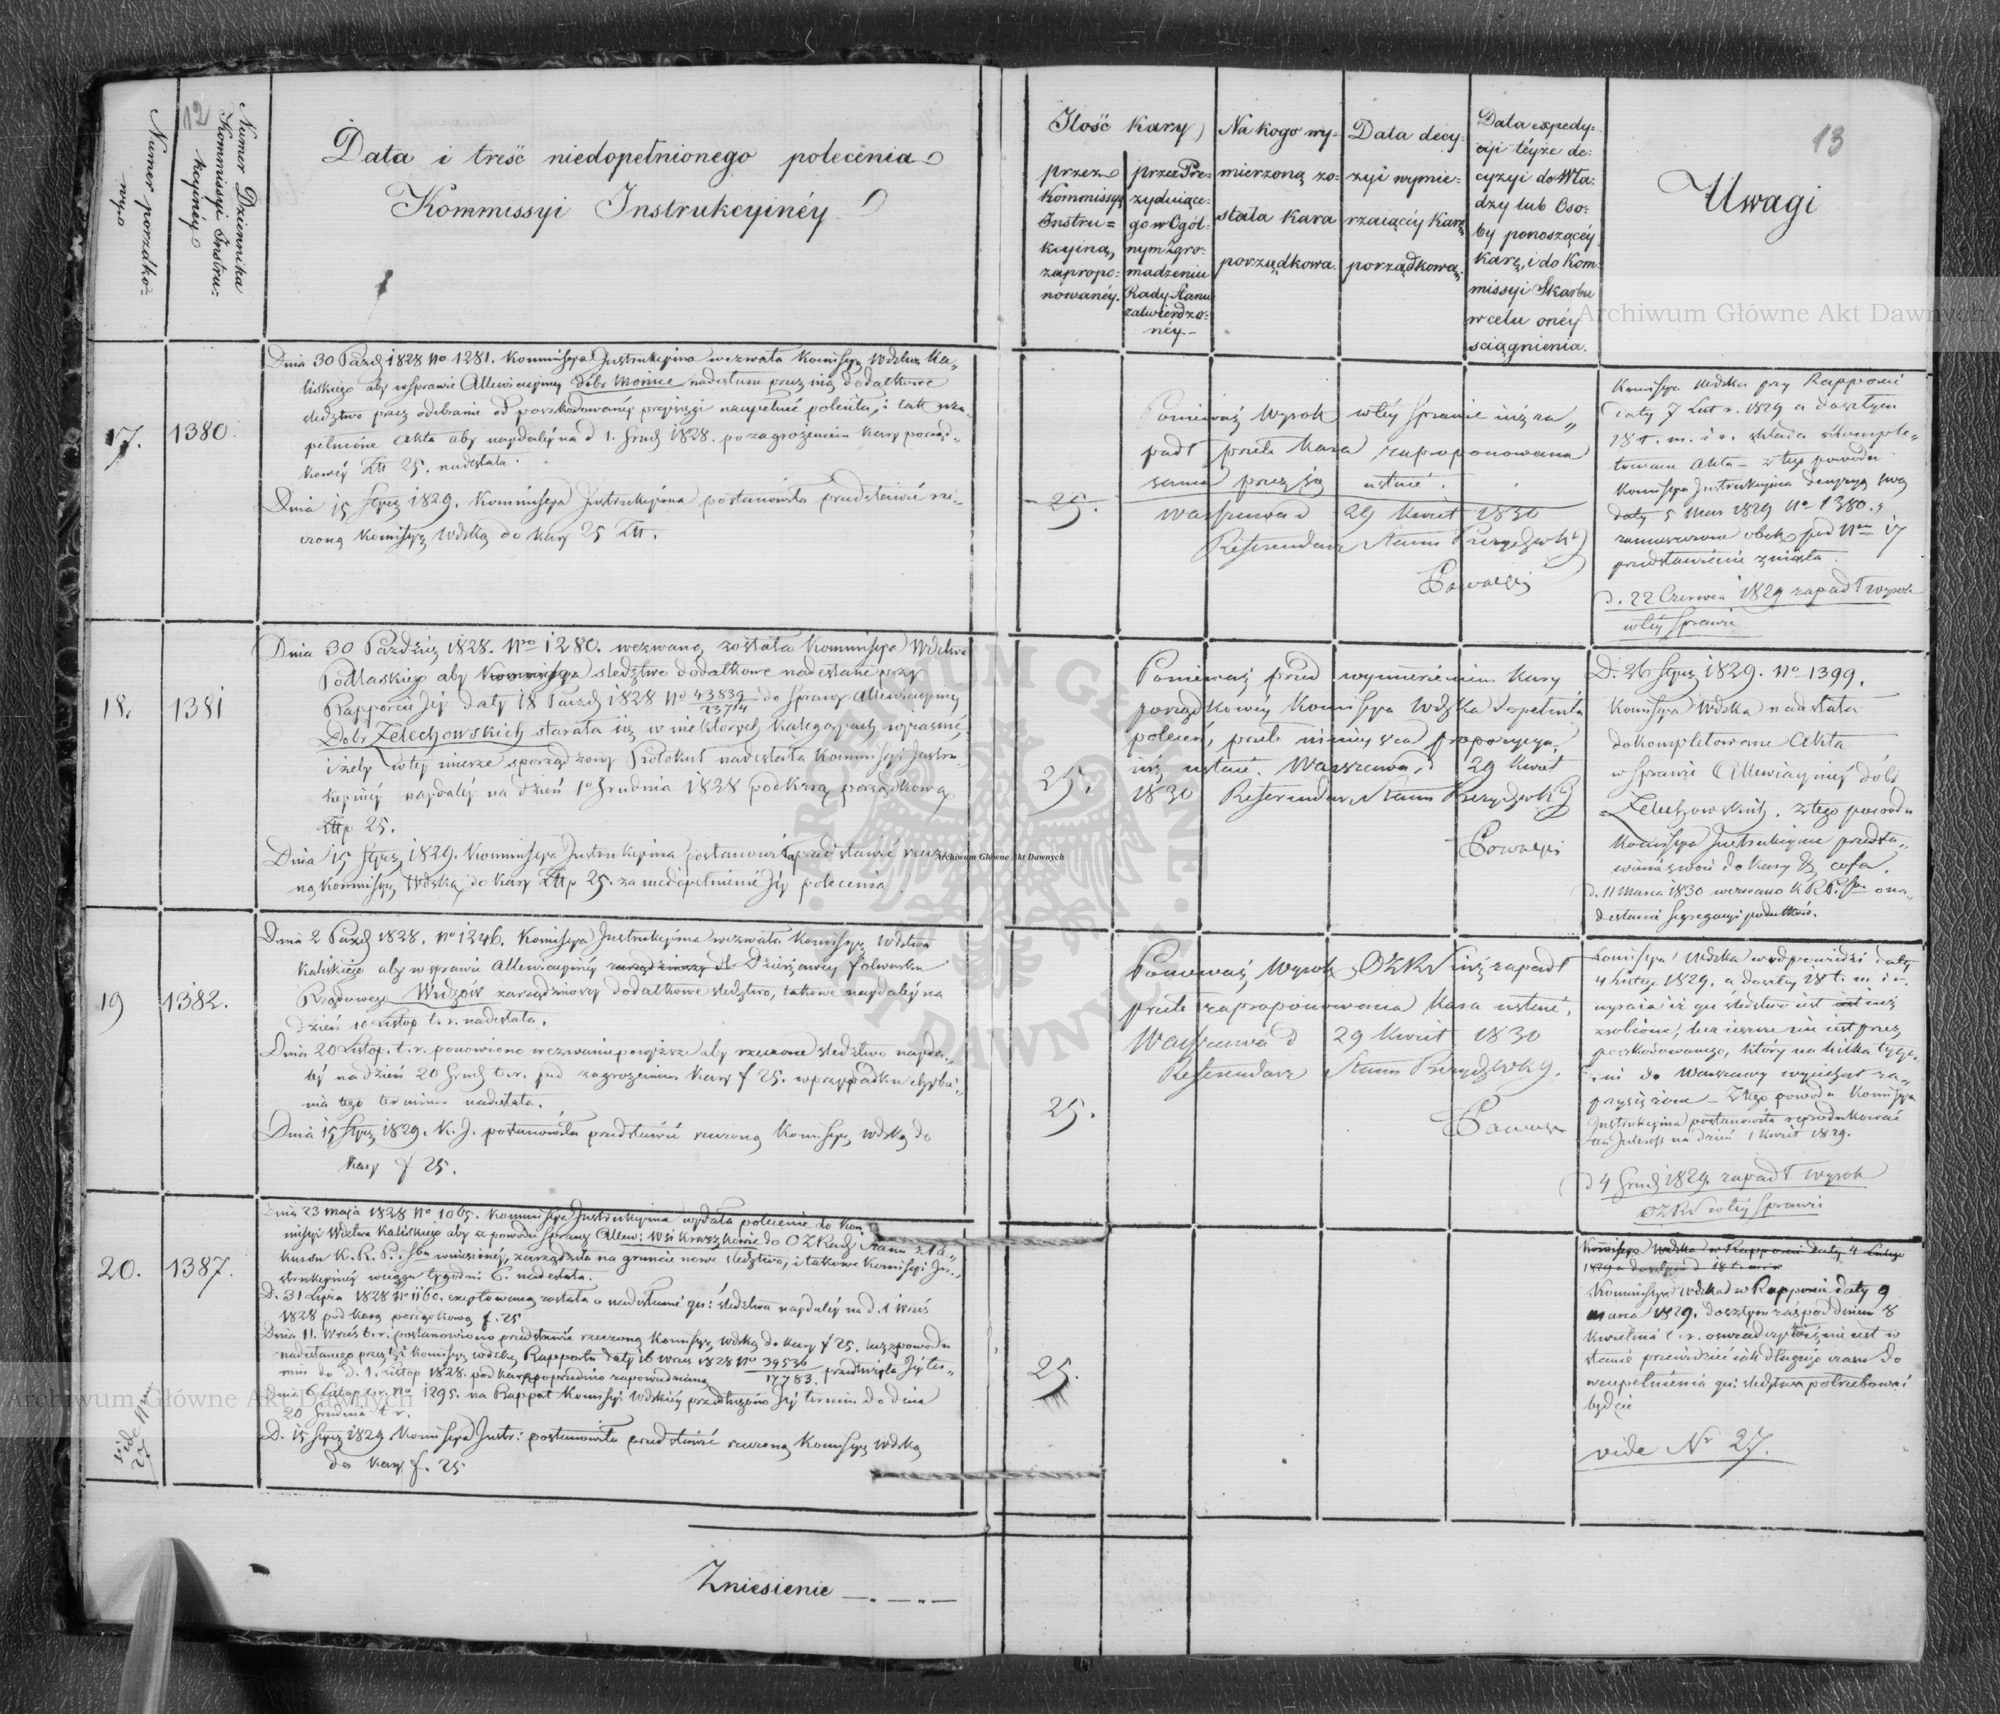 12
13
Numer porządko-
wy
Numer Dziennika
Kommissyi Instru-
kcyinéy
Data i treść niedopełnionego polecenia
Kommissyi Instrukcyinéy
Ilość kary
przez
Kommissyą
Instru=
kcyiną
zapropo-
nowanéy.
przez Pre-
zyduiące-
go w Ogól-
nym Zgro-
madzeniu
Rady Stanu
zatwierdzo-
néy.
Na kogo wy-
mierzoną zo-
stała kara
porządkowa.
Data decy-
zyi wymie-
rzaiącéy karę
porządkową.
Data expedy-
cyi téyże de-
cyzyi do Wła-
dzy lub Oso-
by ponoszącéy
karę, i do Kom-
missyi Skarbu
w celu onéy
sciągnienia.
Uwagi
17.
1380.
Dnia 30 Paźd 1828 No 1281. Kommissya Instrukcyina wezwała Komissyę Wdztwa Ka-
liskiego aby w sprawie Allewiacyiney dóbr nadesłane przez nią dodatkowe
śledztwo przez odebranie od poszkodowanéy przysięgi uzupełnić poleciła, i tak uzu-
pełnione Akta aby naydaléy na d 1. Grud 1828. pod zagrożeniem kary porząd-
kowéy Złt 25. nadesłała.
Dnia 15 Stycz 1829. Kommissya Instrukcyina postanowiła przedstawić rze-
czoną Komissyę Wdzką do kary 25 Złt.
25.
Ponieważ Wyrok w téy sprawie iuż za„
padł przeto kara zaproponowana
sama przez się ustaie.
Warszawa d 29 Kwiet 1830
Referendarz Stanu
Komissya Wdzka przy Rapporcie
daty 7 Lut r. 1829 a doszłym
18 t. m. i r. składa skomple-
towane Akta — z tego powodu
Komissya Instrukcyina decyzyą swą
daty 5 Mar 1829 No 1380.
zamieszczone obok pod Nem 17
przedstawienie zniosła.
d. 22 Czerwca 1829 zapadł wyrok
w téy sprawie
18.
1381
Dnia 30 Paździer 1828. Nro 1280. wezwaną została Kommissya Wdztwa
Podlaskiego aby Kommissya śledztwo dodatkowe nadesłane przy
Rapporcie Jéy daty 18 Paźd 1828 No 43839/23714 do sprawy Allewiacyiney
Dóbr Zelechowskich starała się w niektorych kategoryach wyiaśnić,
i żeby w téy mierze sporządzony Protokuł nadesłała Kommissyi Instru-
kcyinéy naydaléy na dzień 1o Grudnia 1828 pod karą porządkową
Złtp 25.
Dnia 15 Stycz 1829. Kommissya Instrukcyina postanowiła przedstawić rzeczo-
ną Kommissyę Wdzką do kary Złtp 25. za niedopełnienie Jéy polecenia.
25.
Ponieważ przed wymierzeniem kary
porządkowéy Komissya Wdzka dopełniła
poleceń, przeto ninieysza propozycya
iuż ustaie. Warszawa d 29 Kwiet
1830 Referendarz Stanu
D. 26 Stycz 1829. No 1399.
Komissya Wdzka nadesłała
dokompletowane Akta
w sprawie Allewiacyinéj dóbr
Zelechowskich. z tego powodu
Komissya Instrukcyina przedsta„
wienie swoie do kary cofa.
d. 11 Marca 1830 wezwano K R P. Sbu o na„
desłanie segregacyi podatków.
19
1382.
Dnia 2 Paźd 1828. No 1246. Komissya Instrukcyina wezwała Komissyę Wdztwa
Kaliskiego aby w sprawie Allewiacyinéy Dzierżawcy folwarku
Rządowego zarządziwszy dodatkowe śledztwo, takowe naydaléy na
dzień 10 Listop t. r. nadesłała.
Dnia 20 Listop. t. r. ponowiono wezwanie powyższe aby rzeczone śledztwo nayda-
léy na dzień 20 Grud t. r. pod zagrożeniem kary f 25. w przypadku chybie-
nia tego terminu nadesłała.
Dnia 15 Stycz 1829. K. J. postanowiła przedstawić rzeczoną Komissyę wdzką do
kary f 25.
25.
Ponieważ Wyrok OZRS iuż zapadł
przeto zaproponowana kara ustaie,
Warszawa d 29 Kwiet 1830
Referendarz Stanu
Komissya Wdzka w odpowiedzi daty
4 Lutego 1829. a doszłéy 18 t. m. i r.
wyraża iż qu śledztwo iest iuż
zrobione, lecz ieszcze nie iest przez
poszkodowanego, który na kilka tygo-
dni do Warszawy wyiechał za„
przysiężone — Z tego powodu Komissya
Instrukcyina postanowiła
na dzień 1 Kwiet 1829.
d 4 Grud 1829 zapadł wyrok
OZRS w téy sprawie
20.
1387.
vide Nrm
27
Dnia 23 Maja 1828 No 1065. Kommissya Instrukcyina wydała polecenie do Kom-
missyi Wdztwa Kaliskiego aby z powodu sprawy Allew: Wsi do OZRady Stanu
K. R. P. i Sbu wniesionéj, zarządziła na gruncie nowe śledztwo, i takowe Komissyi In-
strukcyinéy w ciągu tygodni 6. nadesłała.
D. 31 Lipca 1828 No 1160. została o nadesłanie qu: śledztwa naydaléy na d. 1 Wrześ
1828 pod karą porządkową f. 25
Dnia 11. Wrześ t. r. postanowiono przedstawić rzeczoną Komissyę Wdzką do kary f 25. lecz z powodu
nadesłanego przez téż Komissyę Wdzką Rapportu daty 16 Wrześ 1828 No 39536/17783. przedłużyła Jéy ter-
min do D. 1. Listop 1828. pod karą poprzednio zapowiedzianą
Dnia 6 Listop t. r. No 1295. na Rapport Komissyi Wdzkiéy przedłużono Jéy termin do dnia
20 Grudnia t. r.
D. 15 Stycz 1829 Komissya Instr: postanowiła przedstawić rzeczoną Komissyę Wdzką
do kary f. 25
25.
Komissya Wdzka w Rapporcie daty 4 Lutego
1829 a doszłym d 18 t. m. i r.
Kommissya Wdzka w Rapporcie daty 9
Marca 1829. doszłym zaś pod dniem 8
Kwietnia t. r. oswiadczyła iż nie iest w
stanie przewidzieć iak długiego czasu do
uzupełnienia qu: śledztwa potrzebować
będzie
vide Nr 27.
Zniesienie
Archiwum Główne Akt Dawnych
Archiwum Główne Akt Dawnych
Archiwum Główne Akt Dawnych
ARCHIWUM GŁÓWNE
AKT DAWNYCH